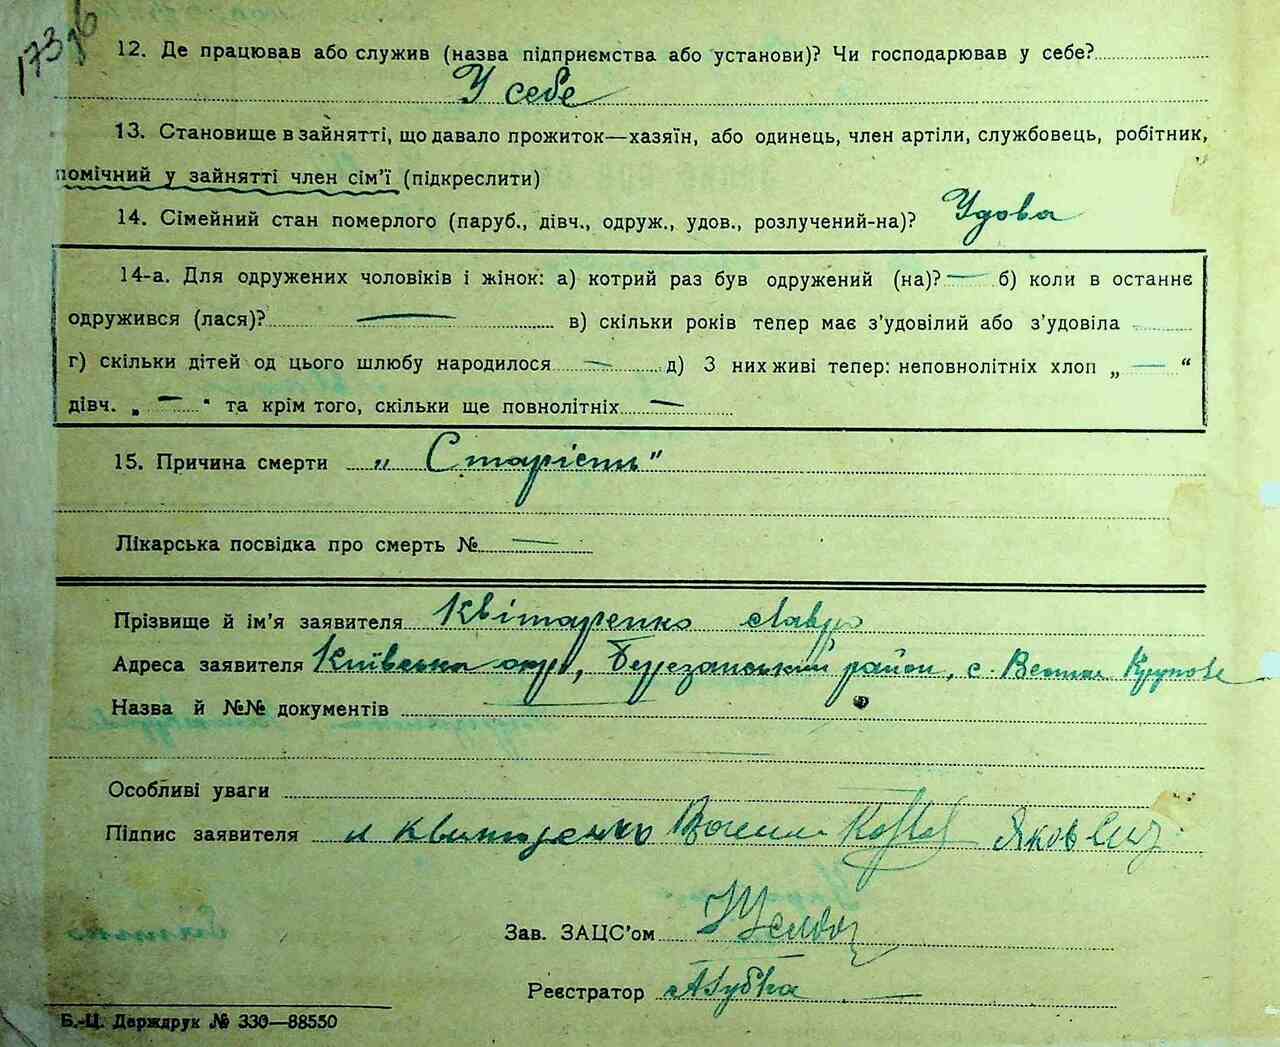 173
12. Де працював або служив (назва підприємства або установи)? Чи господарював у себе?
У себе
13. Становище в зайнятті, що давало прожиток—хазяїн, або одинець, член артіли, службовець, робітник,
помічний у зайнятті член сім'ї (підкреслити)
14. Сімейний стан померлого (паруб., дівч., одруж., удов., розлучений-на)? Удова
14-а. Для одружених чоловіків і жінок: а) котрий раз був одружений (на)? — б) коли в останнє
одружився (лася)? — в) скільки років тепер має з'удовілий або з'удовіла
г) скільки дітей од цього шлюбу народилося — д) З них живі тепер: неповнолітніх хлоп „ — “
дівч. „ — “ та крім того, скільки ще повнолітніх —
15. Причина смерти „ Старість "
Лікарська посвідка про смерть № —
Прізвище й ім'я заявителя Квітаренко Лавро
Адреса заявителя Київська окр., Березанський район, с. Крупове
Назва й №№ документів
Особливі уваги
Підпис заявителя
Зав. ЗАЦС'ом
Реєстратор
Б.-Ц. Держдрук № 330—88550